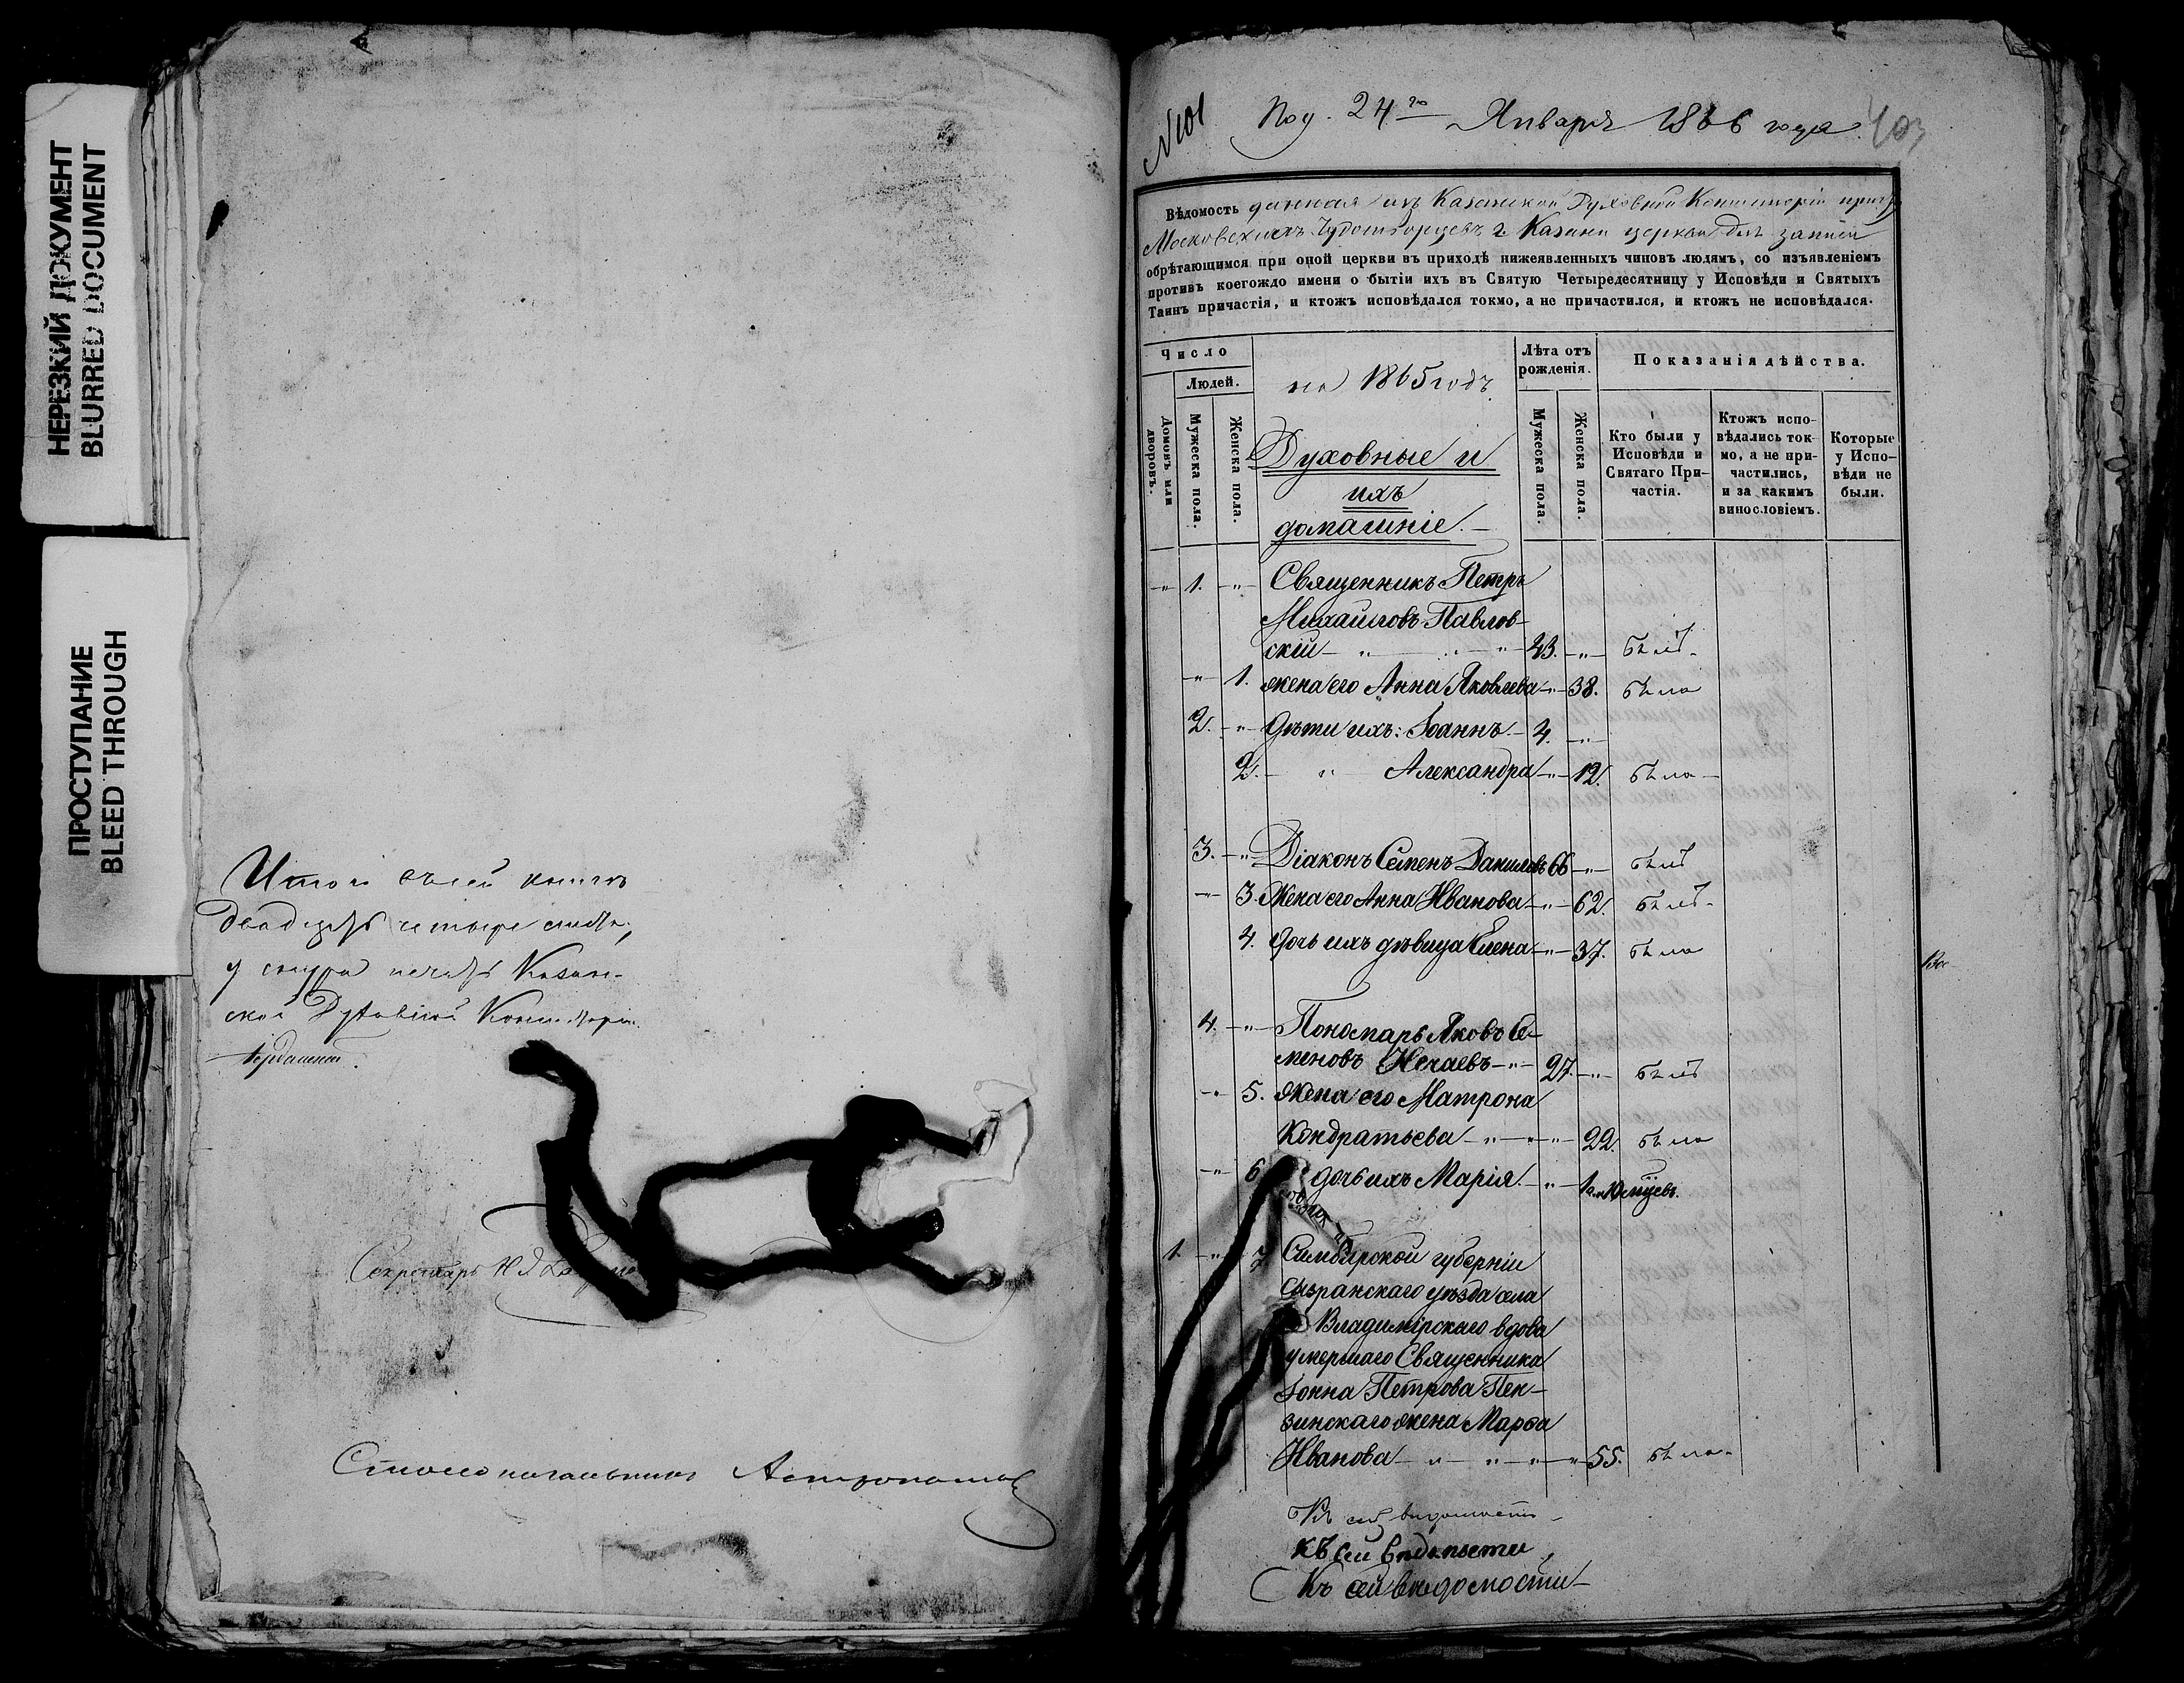 НЕРЕЗКИЙ ДОКУМЕНТ
BLURRED DOCUMENT
ПРОСТУПАНИЕ
BLEED THROUGH
Итого въ сей книгѣ
двадцать четыре листа,
у снура печать Казан-
ской Духовной Консисторіи
Секретарь
Столоначальникъ
№101
Под. 24го Января 1866 года
403
Вѣдомость данная изъ Казанской Духовной Консисторіи
Московскихъ Чудотворцевъ г. Казани церкви для записи
обрѣтающимся при оной церкви въ приходѣ нижеявленныхъ чиновъ людямъ, со изъявленіемъ
противъ коегождо имени о бытіи ихъ въ Святую Четыредесятницу у Исповѣди и Святыхъ
Таинъ причастія, и ктожъ исповѣдался токмо, а не причастился, и ктожъ не исповѣдался.
Число
Людей.
Домовъ или дворовъ.
Мужеска пола.
Женска пола.
на 1865 годъ.
Духовные и
ихъ
домашніе.
Лѣта отъ рожденія.
Мужеска пола.
Женска пола.
Показанія дѣйства.
Кто были у Исповѣди и Святаго При-частія.
Ктожъ испо-вѣдались ток-мо, а не при-частились, и за какимъ винословіемъ.
Которые у Испо-вѣди не были.
1. Священникъ Петръ
Михайловъ Павлов-
скій 43. былъ
1. жена его Анна Яковлева 38. была
2. дѣти ихъ: Іоаннъ 4.
2. Александра 12. была
3. Діаконъ Семенъ Даниловъ 66 былъ
3. Жена его Анна Иванова 62.
4. дочь ихъ дѣвица Елена 37. была
4. Пономарь Яковъ Се-
меновъ Нечаевъ 27. былъ
5. Жена его Матрона
Кондратьева 22. была
6 дочь ихъ Марія. 1
1. 7 Симбирской губерніи
Сызранскаго уѣзда села
Владимірскаго вдова
умершаго Священника
Іоанна Петрова Пен-
зинскаго жена Марѳа
Иванова 55. была
Къ сей вѣдомости
къ сей вѣдомости
Къ сей вѣдомости